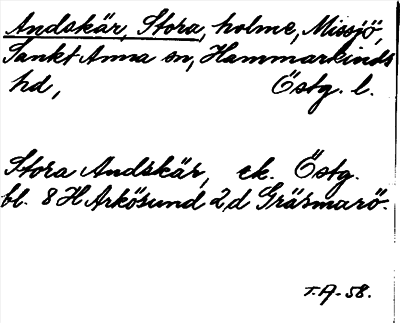 Andskär, Stora, holme, Missjö,
Sankt Anna sn, Hammarkinds
hd, Östg. l.
Stora Andskär, ek. Östg.
bl. 8 H Arkösund 2,d Gräsmarö.
T.A. 58.